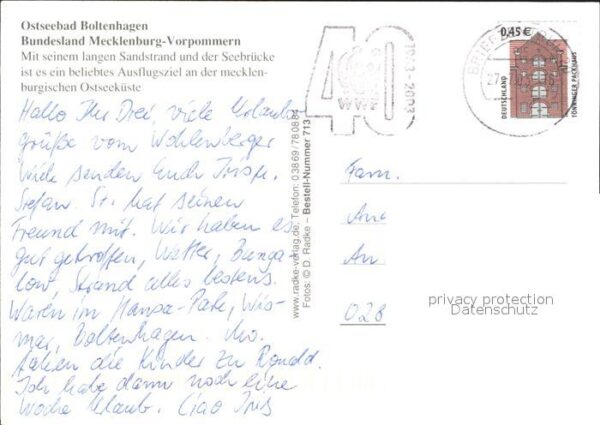 Ostseebad Boltenhagen
Bundesland Mecklenburg-Vorpommern
Mit seinem langen Sandstrand und der Seebrücke
ist es ein beliebtes Ausflugsziel an der mecklen-
burgischen Ostseeküste
Hallo Ihr Drei, viele Urlaubs-
grüße vom Wohlenberger
Wiek senden Euch Iris,
Stefan. St. hat seinen
Freund mit. Wir haben es
gut getroffen, Wetter, Bunga-
low, Strand alles bestens.
Waren im Hansa-Park, Wis-
mar, Boltenhagen. Mo.
fahren die Kinder zu Ronald.
Ich habe dann noch eine
Woche Urlaub. Ciao Iris
www.radke-verlag.de, Telefon: 03869/7808
Fotos: © D. Radke – Bestell-Nummer 713
40
WWF
1963 - 2003
BRIEF
0,45 €
DEUTSCHLAND
TÖNNINGER PACKHAUS
Fam.
An
028
privacy protection
Datenschutz